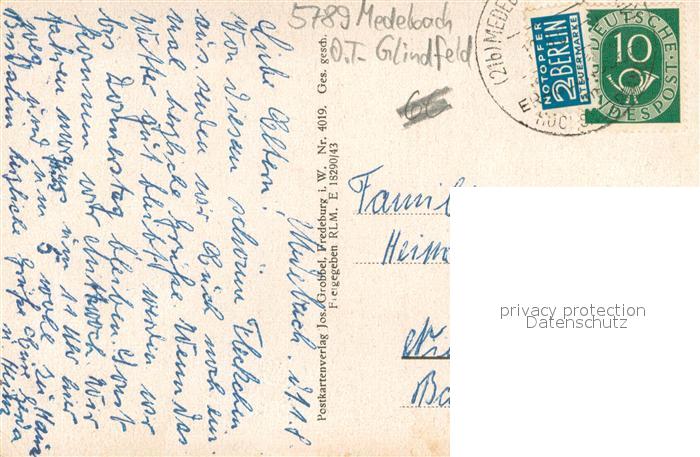 5789 Medebach
O.T. Glindfeld
66
(21b) MEDEB
NOTOPFER
2 BERLIN
STEUERMARKE
DEUTSCHE
10
BUNDESPOST
Postkartenverlag Jos. Grobbel, Fredeburg i. W. Nr. 4019. Ges. gesch.
Freigegeben RLM. E 18290/43
Liebe Eltern!
Von diesem schönen Fleckchen
aus senden wir Euch noch ein-
mal herzliche Grüße. Wenn das
Wetter gut bleibt werden wir
bis Donnerstag bleiben. Sonst
kommen wir Mittwoch. Wir
fahren morgens um 11 Uhr hier
weg und um 5 wohl zu Haus
herzliche Grüße
Famil
Heinr
Ba
privacy protection
Datenschutz